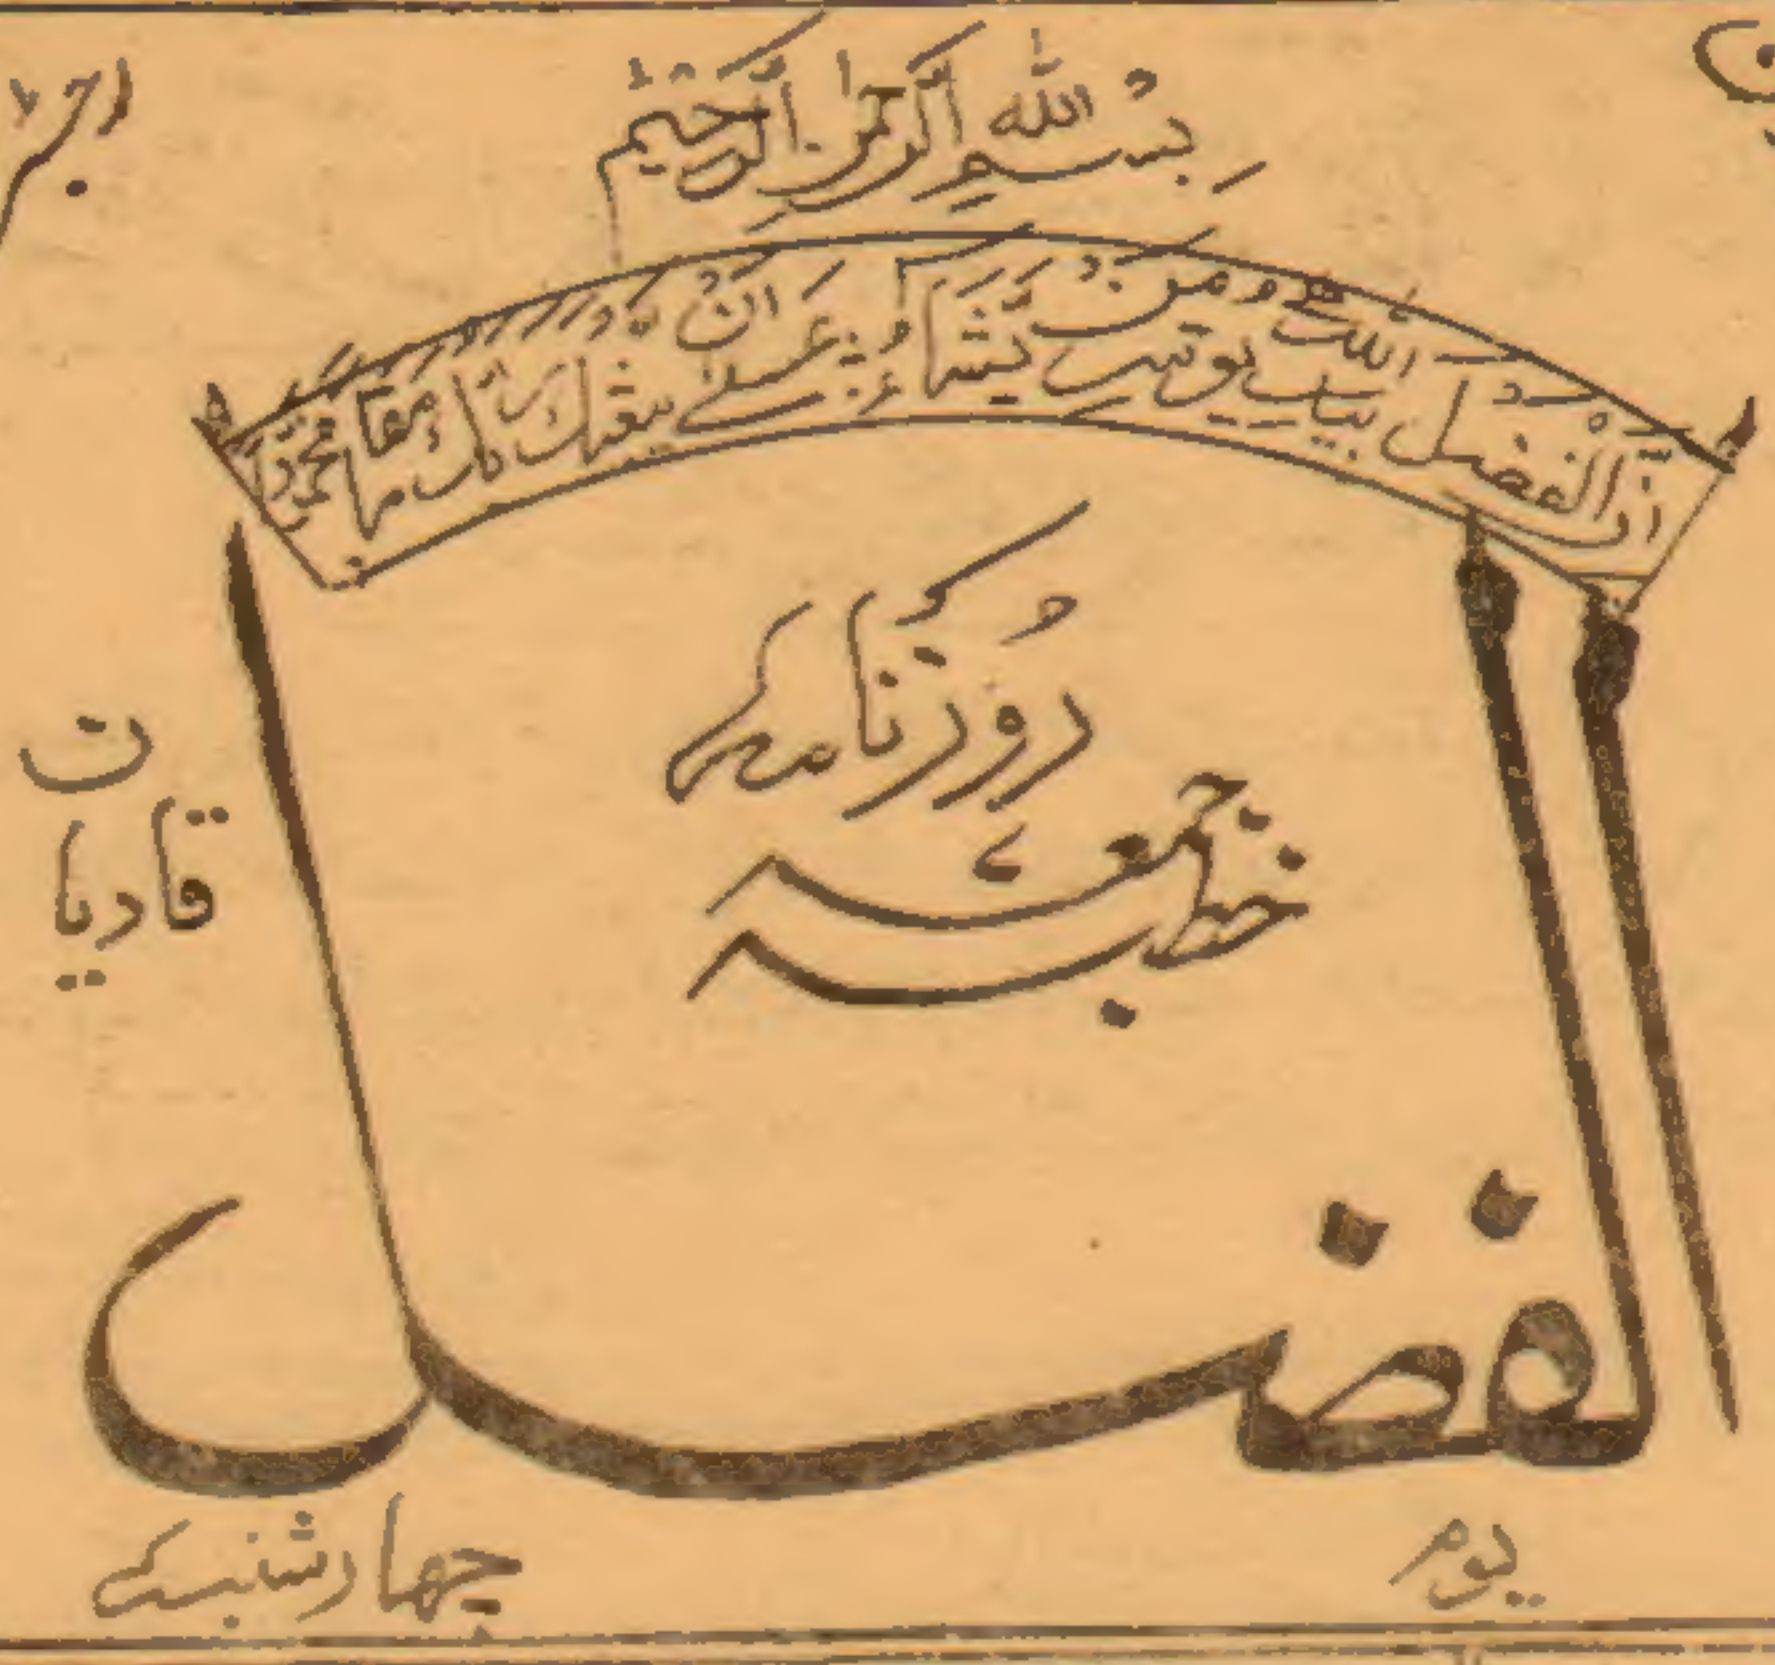 بِسْمِ اللهِ الرَّحْمٰنِ الرَّحِيْمِ
اِنَّ الْفَضْلَ بِيَدِ اللهِ يُؤْتِيْهِ مَنْ يَّشَآءُ عَسٰى اَنْ يَّبْعَثَكَ رَبُّكَ مَقَامًا مَّحْمُوْدًا
روزنامہ
خطبہ جمعہ
قادیان
الفضل
یوم
چہارشنبہ